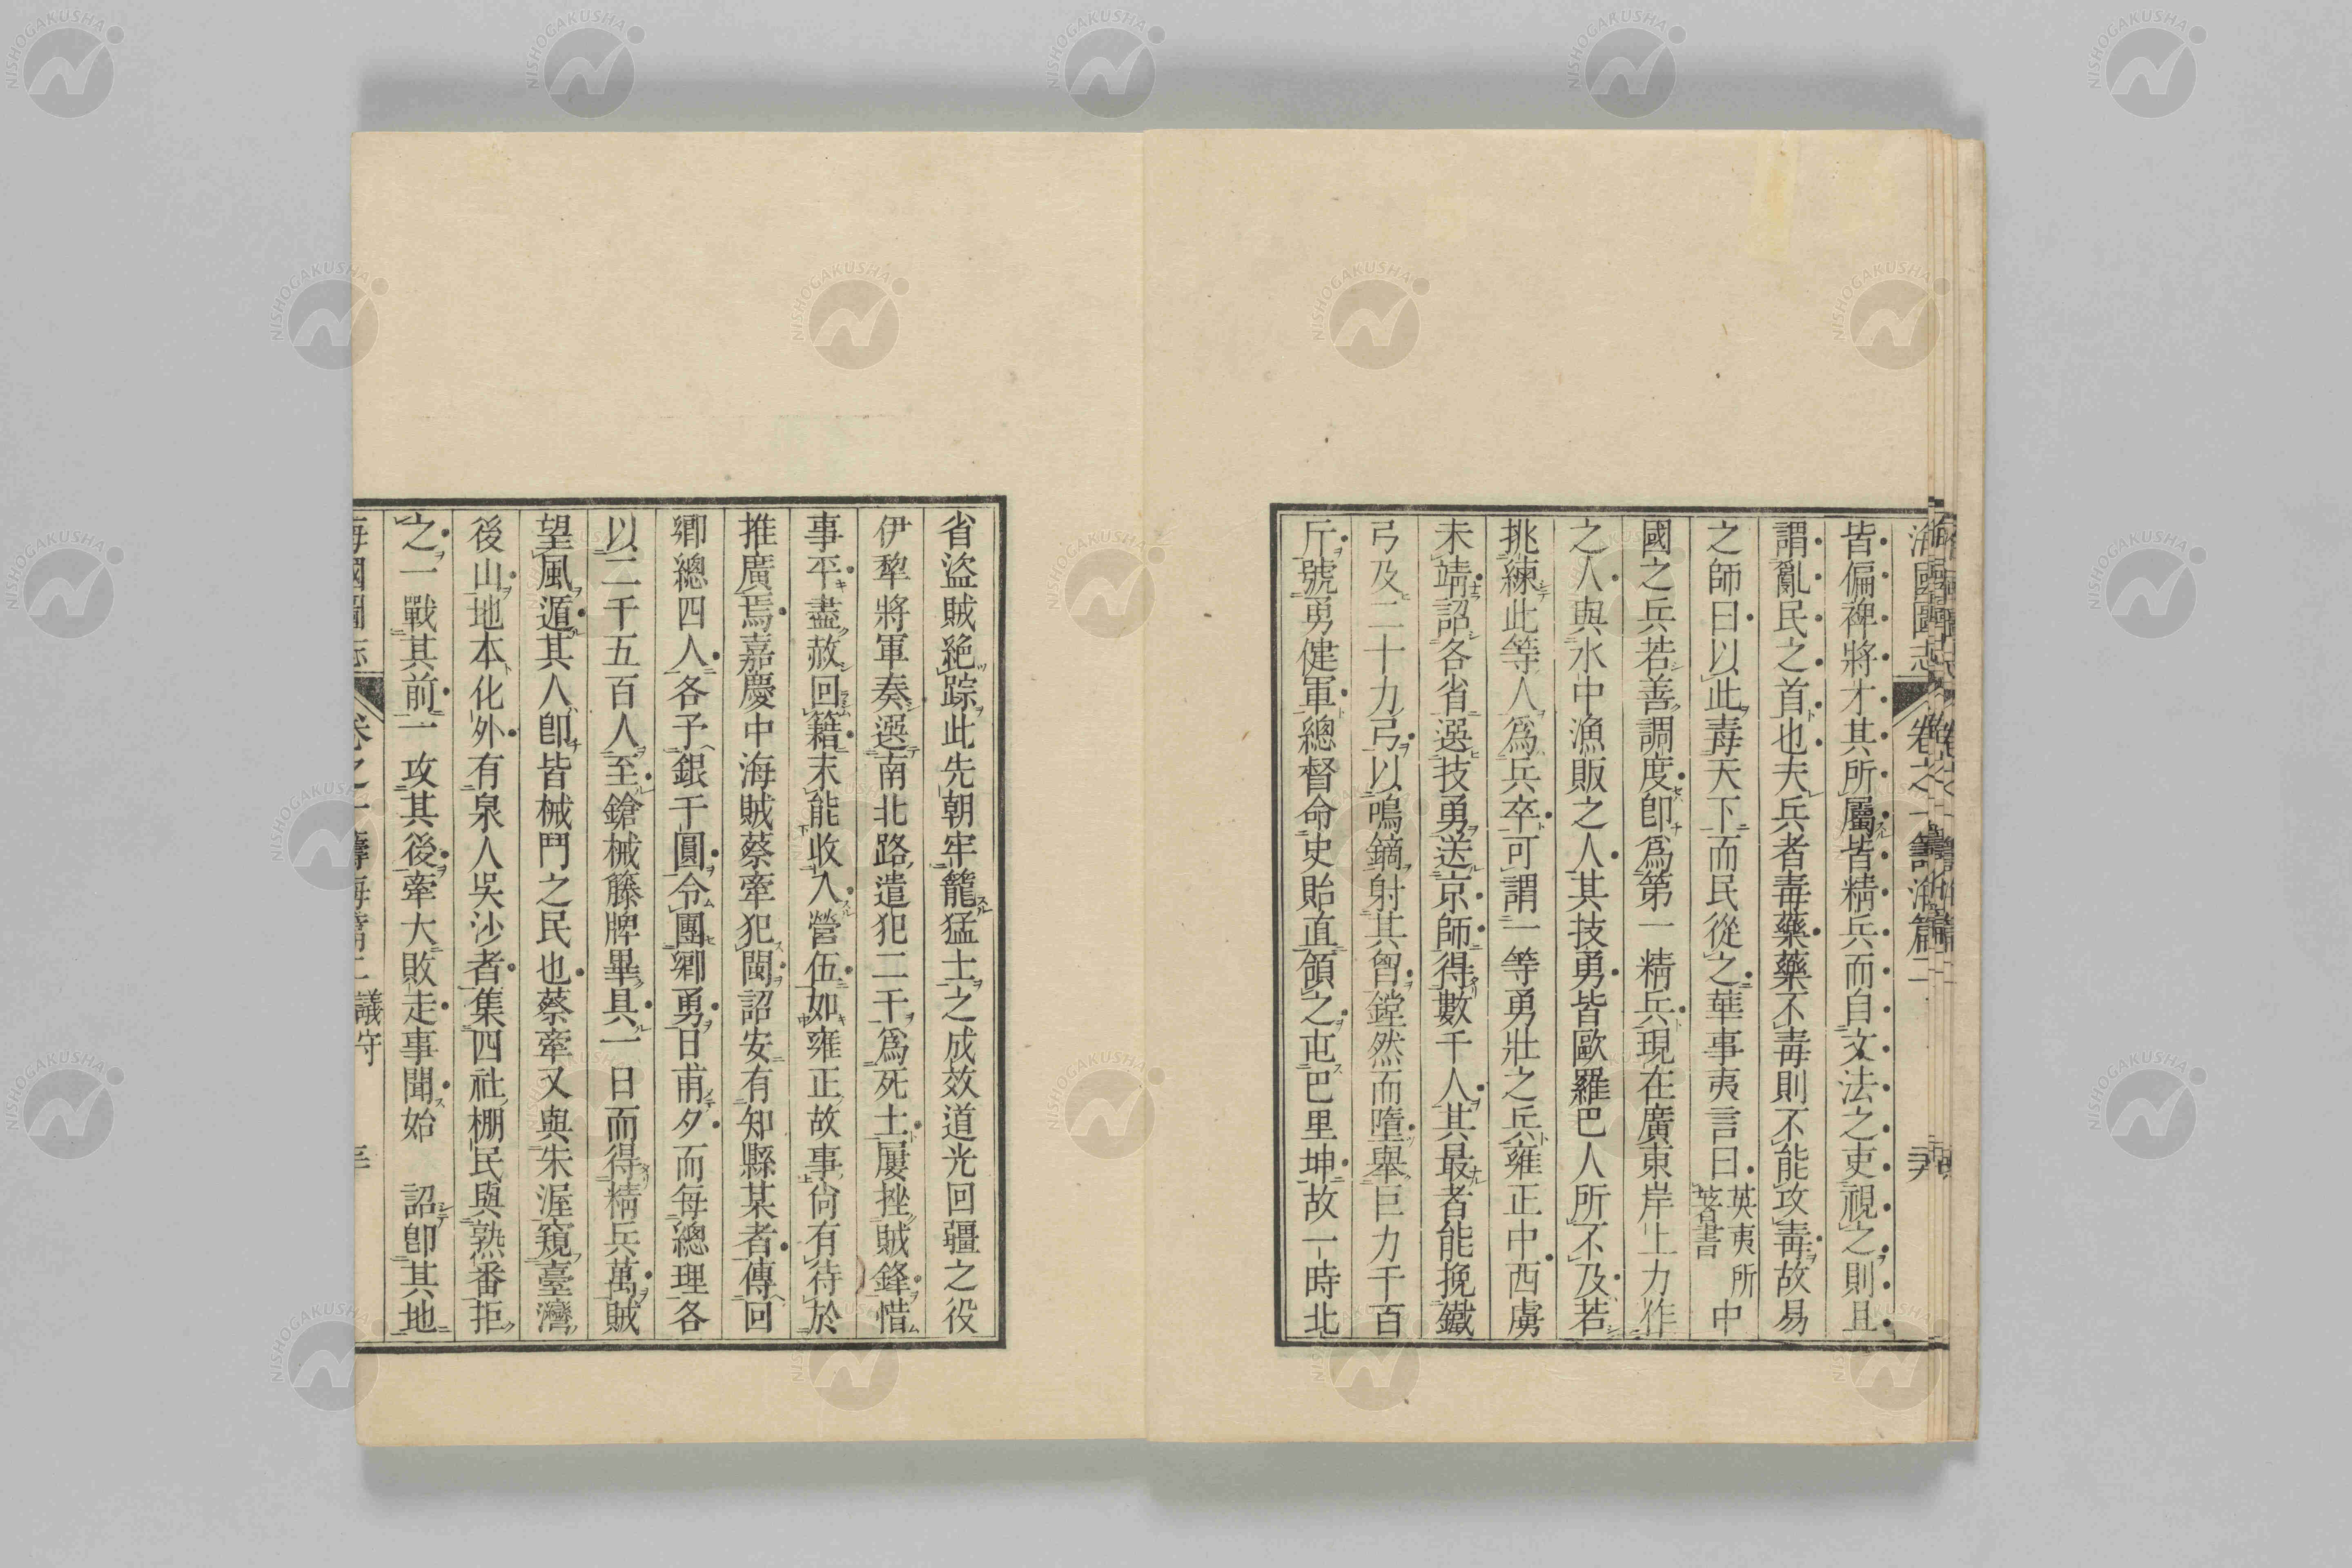 海國圖志 卷之一 籌海篇二
皆偏裨將才其所屬皆精兵而自文法之吏視之則且
謂亂民之首也夫兵者毒藥藥不毒則不能攻毒故易
之師曰以此毒天下而民從之華事夷言曰英夷所著書中
國之兵若善調度卽爲第一精兵現在廣東岸上力作
之人與水中漁販之人其技勇皆歐羅巴人所不及若
挑練此等人爲兵卒可謂一等勇壯之兵雍正中西虜
未靖詔各省選技勇送京師得數千人其最者能挽鐵
弓及二十力弓以鳴鏑射其曾鏜然而墮舉巨力千百
斤號勇健軍總督命史貽直領之屯巴里坤故一時北
省盜賊絕踪此先朝牢籠猛士之成效道光回疆之役
伊犂將軍奏選南北路遣犯二千爲死士屢挫賊鋒惜
事平盡赦回籍末能收入營伍如雍正故事尙有待於
推廣焉嘉慶中海賊蔡牽犯閩詔安有知縣某者傳回
鄕總四人各予銀千圓令團鄕勇日甫夕而每總理各
以二千五百人至鎗械籐牌畢具一日而得精兵萬賊
望風遁其人卽皆械鬥之民也蔡牽又與朱渥窺臺灣
後山地本化外有泉人吳沙者集四社棚民與熟番拒
之一戰其前一攻其後牽大敗走事聞始 詔卽其地
海國圖志 卷之一 籌海篇二 議守